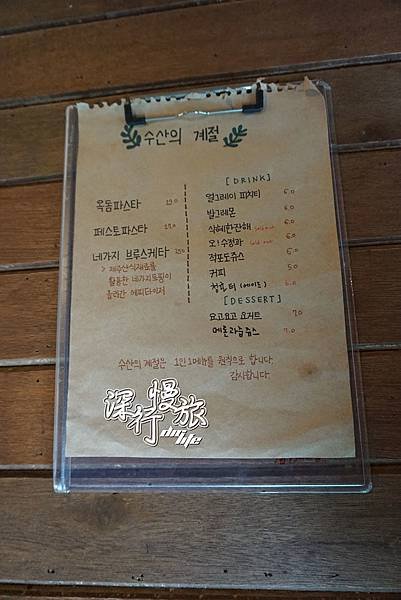 수산의 계절
옥돔파스타 19.0
페스토파스타 17.0
네가지 브루스케타
> 제주산 식재료를
활용한 네가지 토핑이
올라간 에피타이저
[DRINK]
얼그레이 피치티 6.0
발그레몬 6.0
식혜한잔해 sold out 6.0
오!수정과 sold out 6.0
적포도쥬스 5.0
커피 5.0
청귤티 (에이드) 6.0
[DESSERT]
요고요고 요거트 7.0
메론과즙쥬스 7.0
수산의 계절은 1인 1메뉴를 원칙으로 합니다.
감사합니다.
深行慢旅
dm life